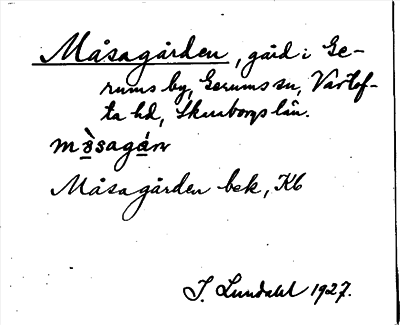 Måsagården, gård i Ge-
rums by, Gerums sn, Vartof-
ta hd, Skaraborgs län.
mò̱sagá̱rv
Måsagården bek, Kb
I. Lundahl 1927.